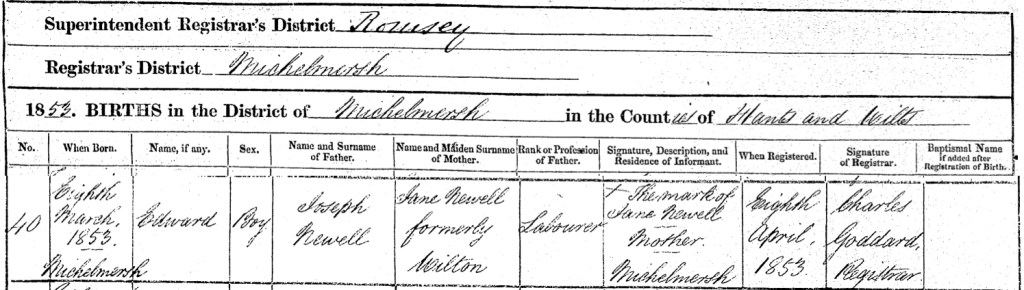 Superintendent Registrar's District Romsey
Registrar's District Michelmersh
1853. BIRTHS in the District of Michelmersh in the Counties of Hants and Wilts
No. When Born. Name, if any. Sex. Name and Surname of Father. Name and Maiden Surname of Mother. Rank or Profession of Father. Signature, Description, and Residence of Informant. When Registered. Signature of Registrar. Baptismal Name if added after Registration of Birth.
40 Eighth March, 1853. Michelmersh Edward Boy Joseph Newell Jane Newell formerly Wilton Labourer + The mark of Jane Newell Mother. Michelmersh Eighth April, 1853. Charles Goddard, Registrar